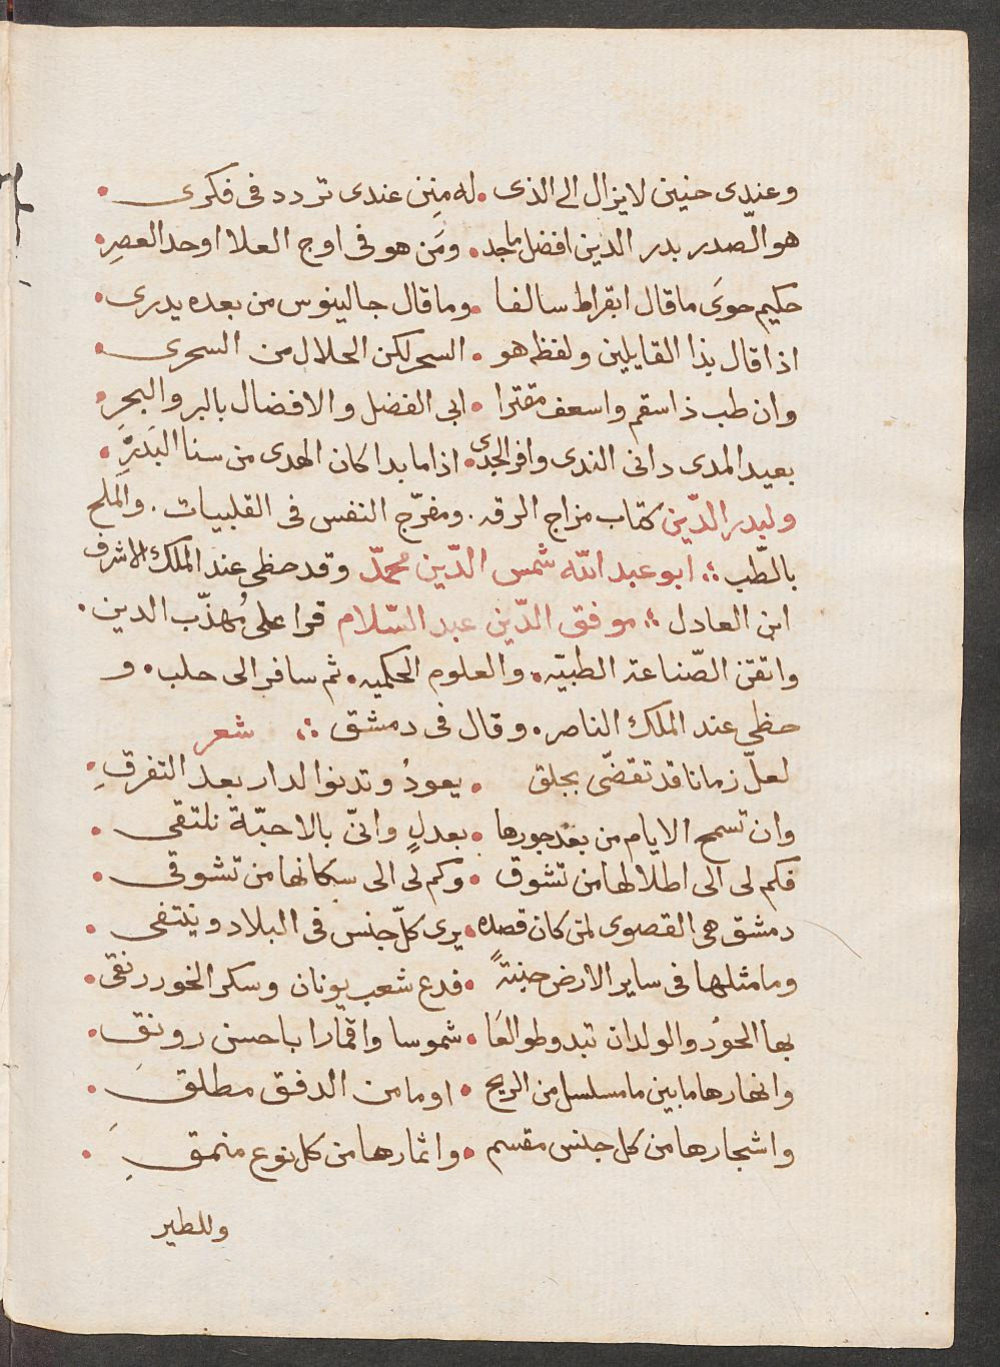 وعندى حنين لا يزال الى الذى • له مِنِن عندى تردد فى فكرى •
هو الصّدر بدر الدين افضل ماجد • ومَن هو فى اوج العلا اوحد العصرِ •
حكيم حوىَ ما قال ابقراط سالفا • وما قال جالينوس من بعده يدرى •
اذا قال بذا القايلين ولفظه هو • السحر لكن الحلال من السحرى •
وان طب ذا سقم واسعف مقترا • ابى الفضل والافضال بالبر والبحرِ •
بعيد المدى دانى الندى وافر الجدى • اذا ما بدا كان الهدى من سنا البَدرِ •
ولبدر الدّين كتاب مزاج الرقه . ومفرّج النفس فى القلبيات . والمَلح
بالطّب ؛. ابو عبد الله شمس الدّين محمدّ وقد حظى عند الملك الاشرف
ابن العادل ؛ موفق الدّين عبد السّلام قرا على مُهذّب الدين •
واتقن الصّناعة الطبيّه • والعلوم الحكميه • ثم سافر الى حلب • و
حظى عند الملك الناصر • وقال فى دمشق ؛. شعر
لعلّ زمانا قد تقضّى بجلق • يعودُ وتدنوا الدار بعد التفرقِ •
وان تسمح الايام من بعد جورها • بعدلٍ وانىّ بالاحبّة نلتقى •
فكم لى الى اطلالها من تشوق • وكم لى الى سكانها من تشوقى •
دمشق هى القصوى لمن كان قصده • يرى كلّ جنس فى البلاد وينتفى •
وما مثلها فى ساير الارض جنةً • فدع شعب يونان وسكر الخوررنقى •
بها الحوُر والولدان تبدو طوالعَا • شموسا واقمارا باحسن رونقِ •
وانهارها ما بين ما مسلسل من الريح • او ما من الدفق مطلقِ •
واشجارها من كل جنس مقسم • واثمارها من كل نوع منمقِ •
وللطير